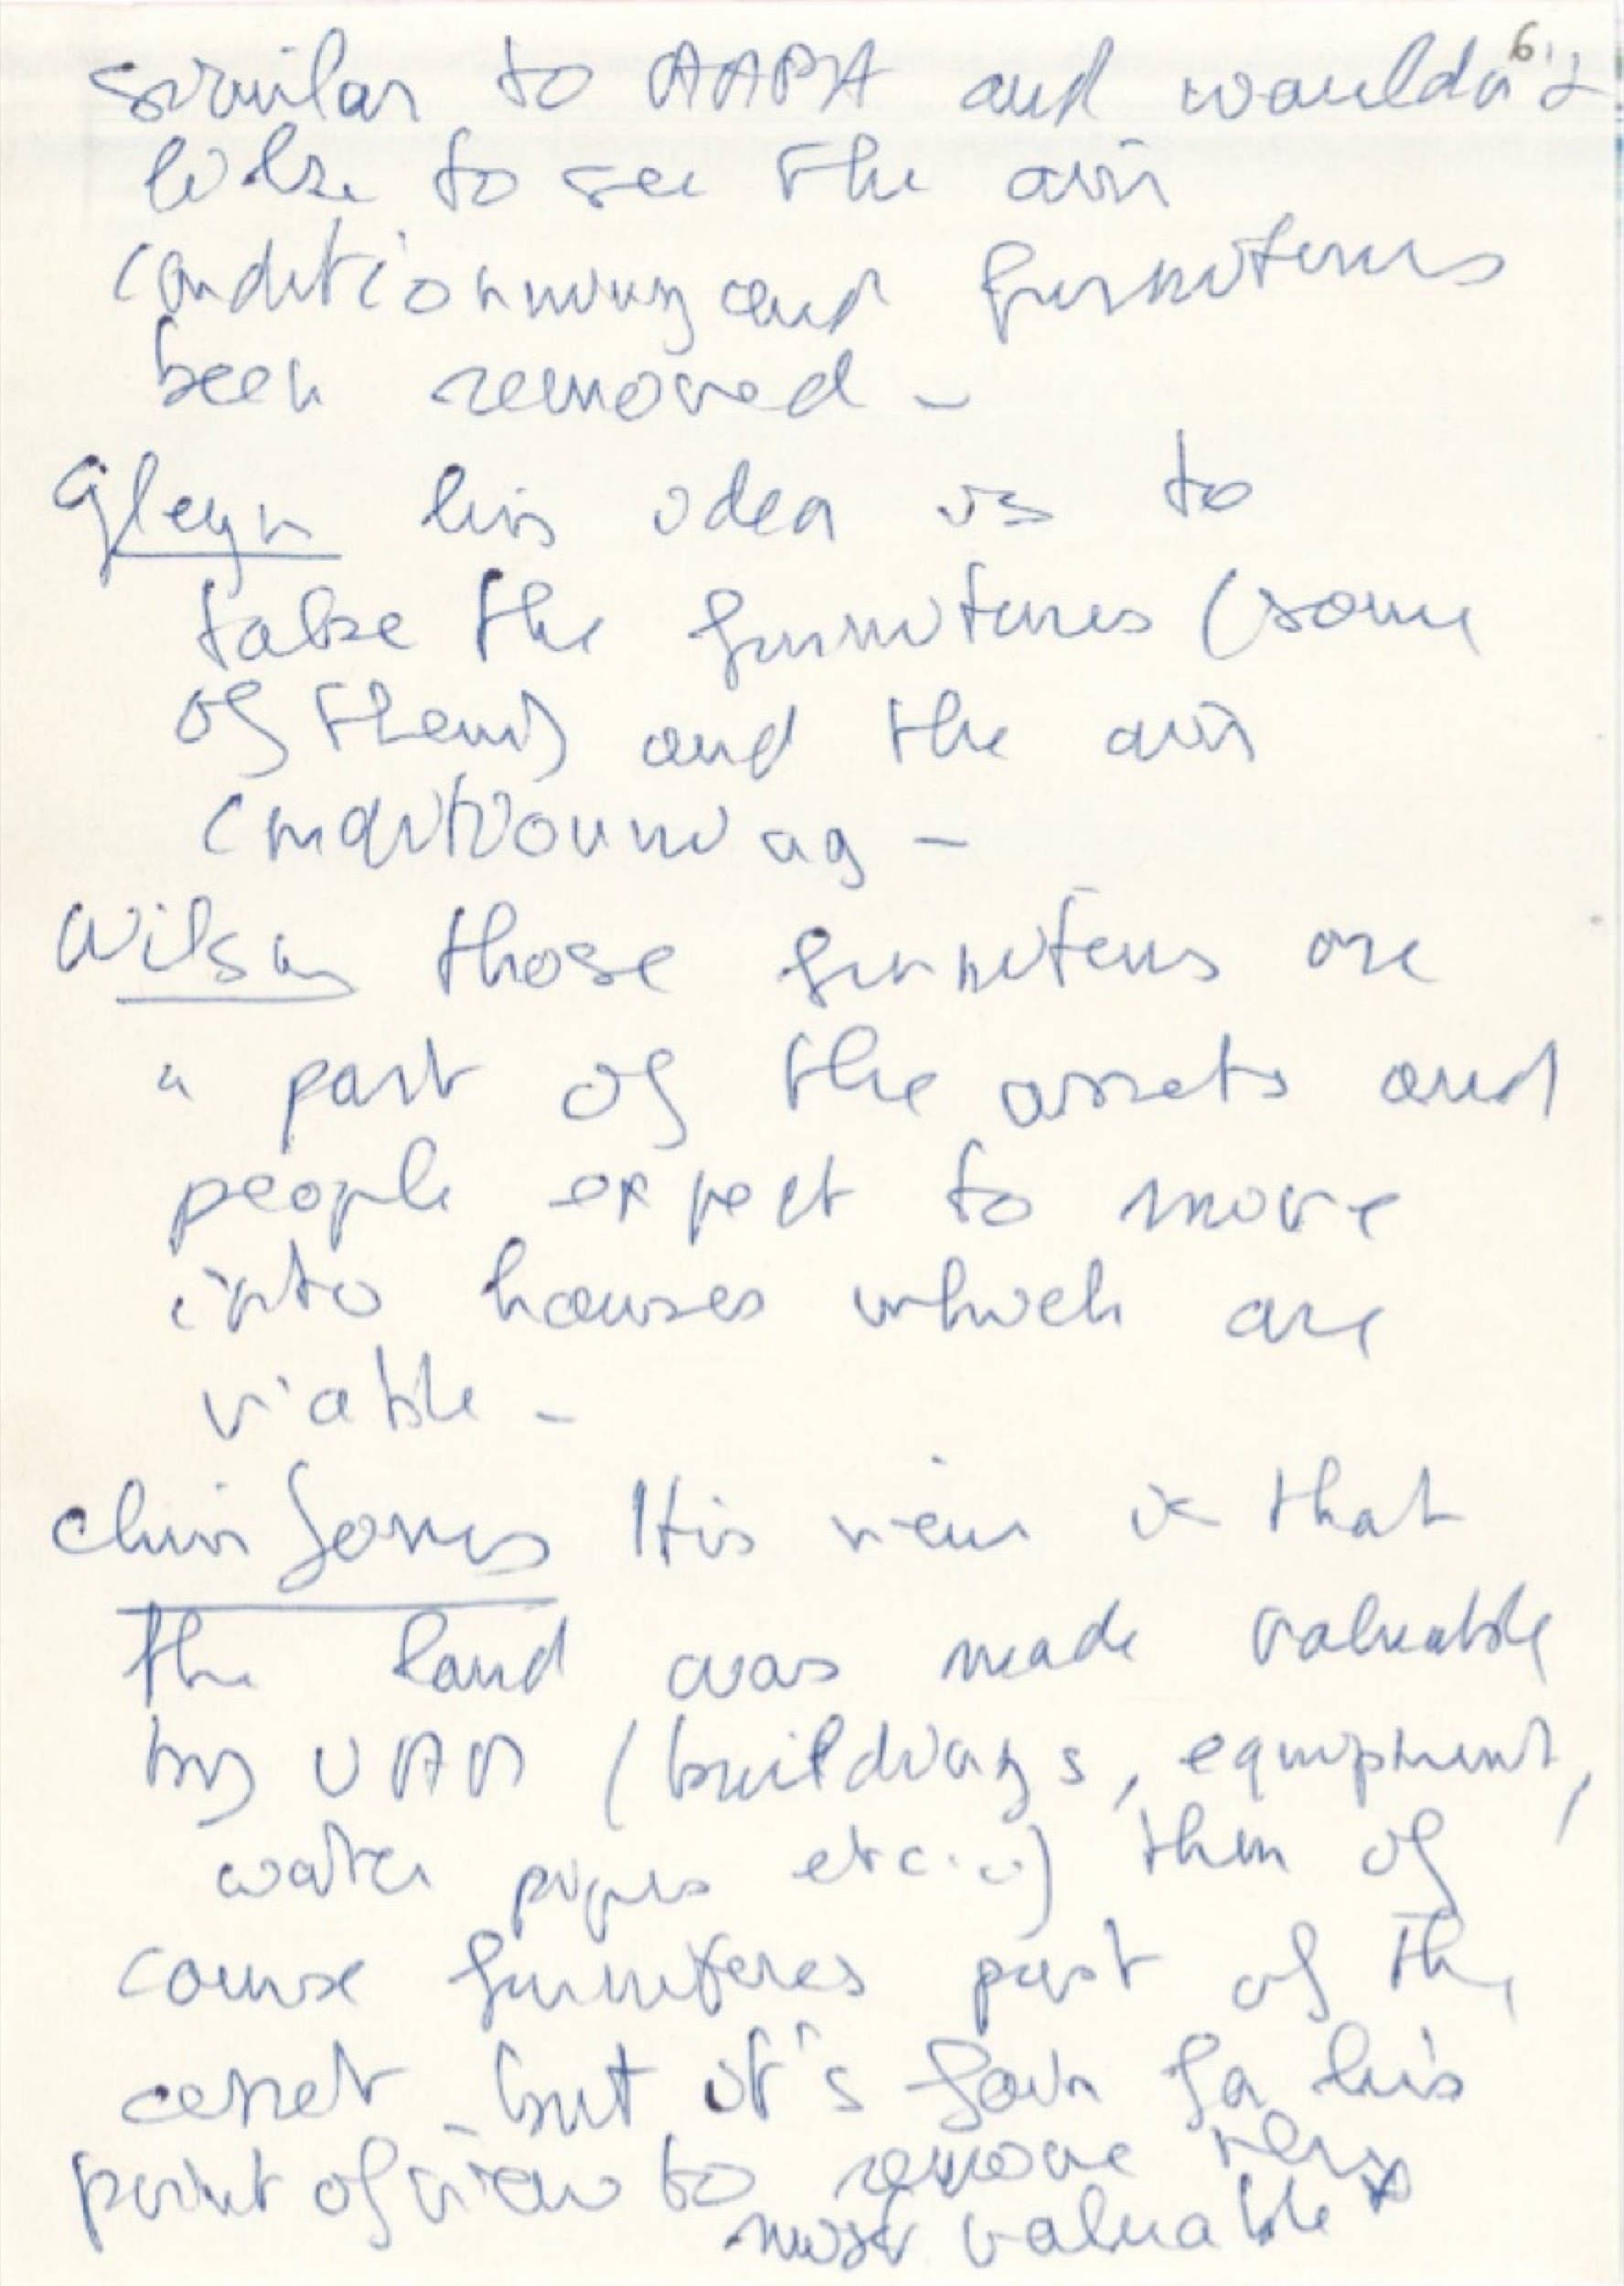 6
similar to AAPA and wouldn't
like to see the air
conditionning and furnitures
been removed -
Gleyn his idea is to
take the furnitures (some
of them) and the air
conditionning -
Wilson those furnitures are
" part of the assets and
people expect to move
into houses which are
viable -
Chris Jones His view is that
the land was made valuable
by UAA (buildings, equipment,
water pipes etc...) then of
course furnitures part of the
asset - but it's fair for his
point of view to remove
most valuable